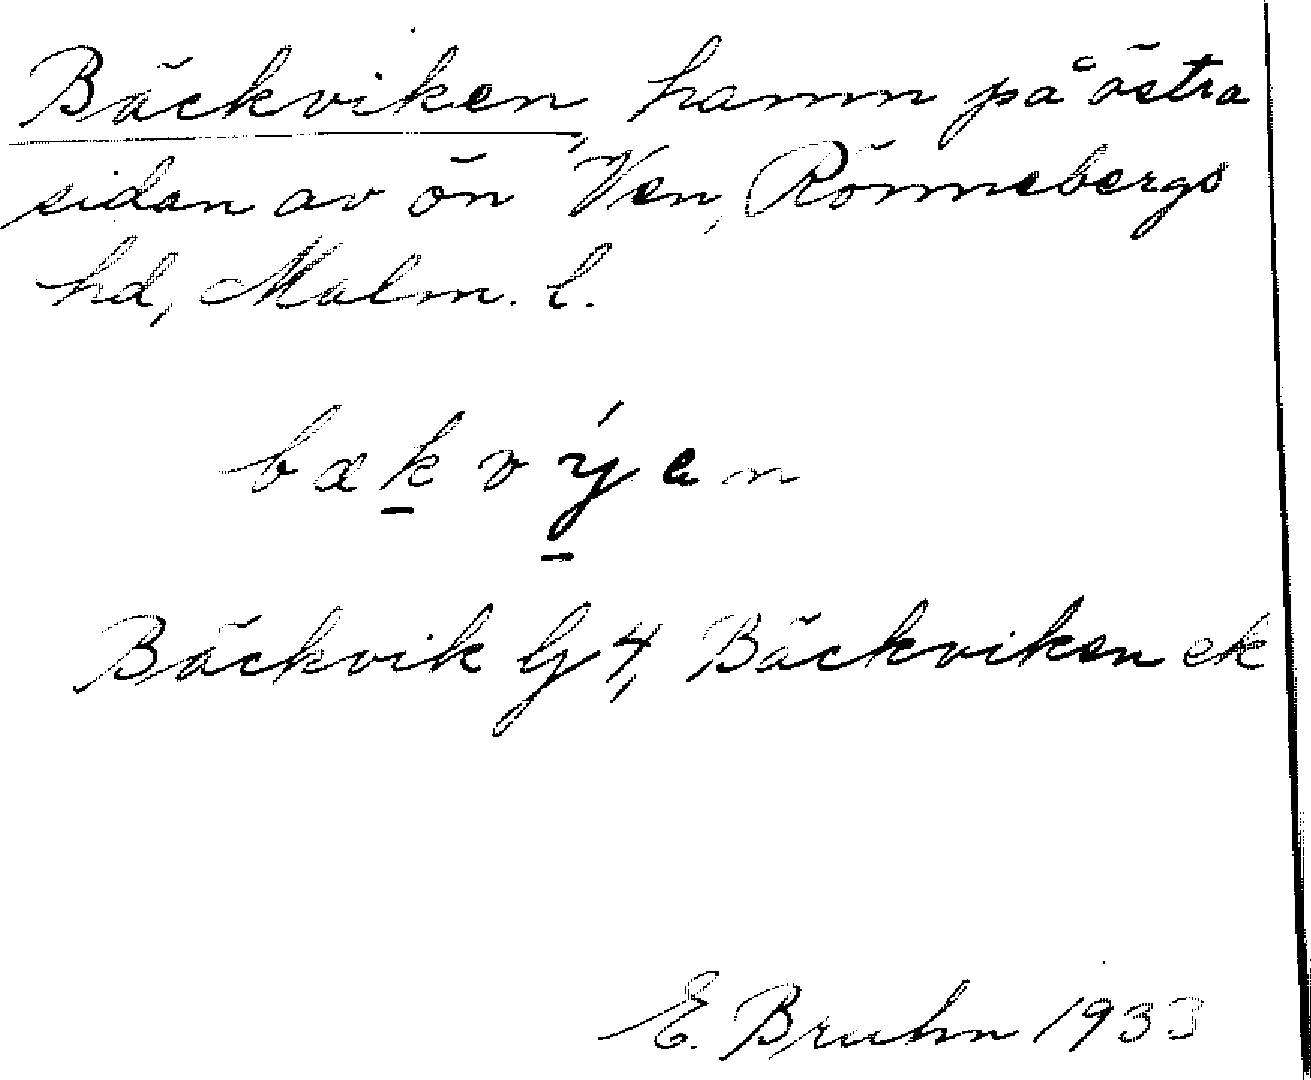 Bäckviken, hamn på östra
sidan av ön Ven, Rönnebergs
hd, Malm. l.
bækvýen
Bäckvik G 4, Bäckviken ek
E. Bruhn 1933